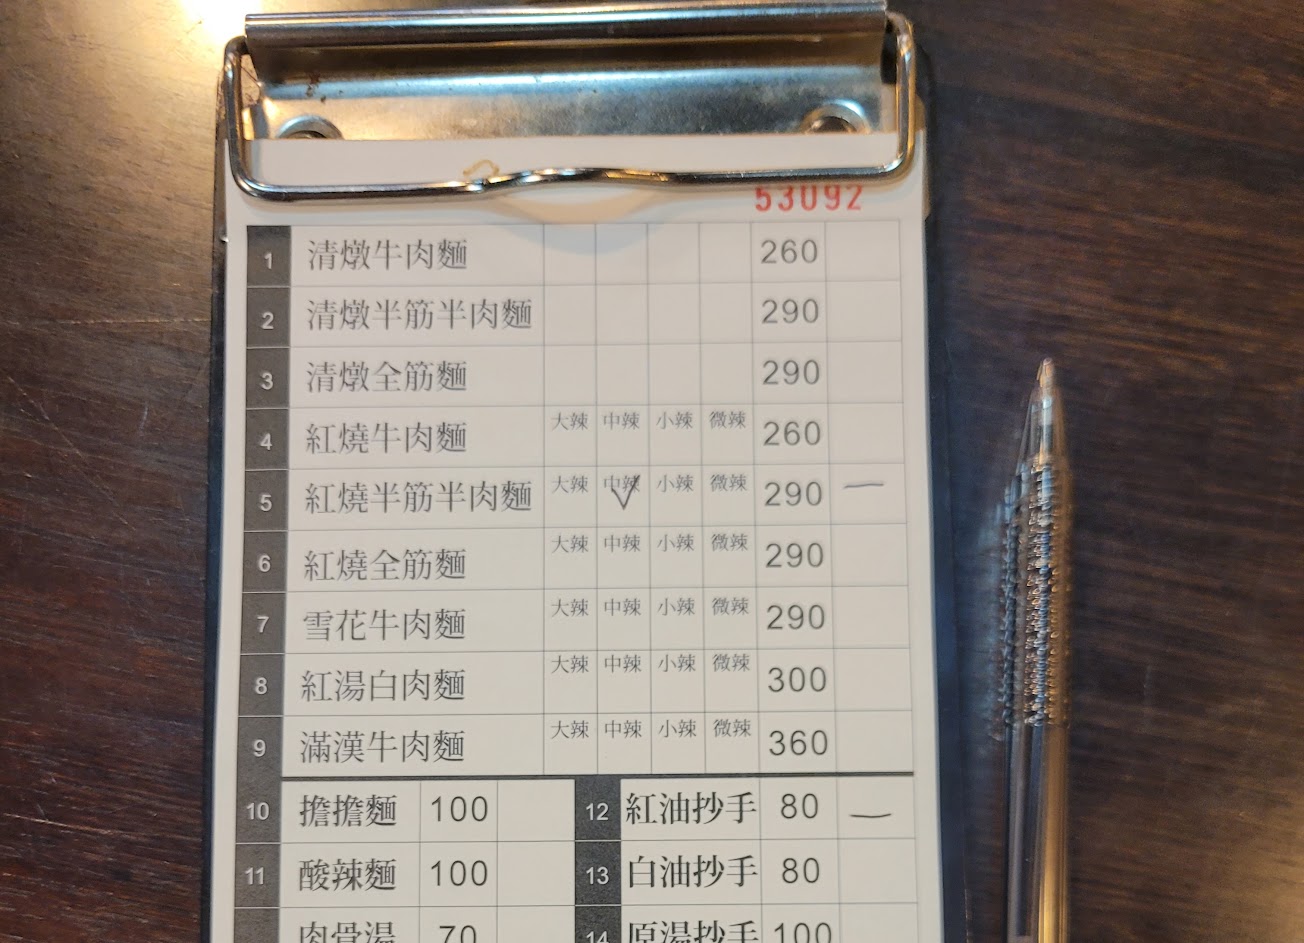 53092
1 清燉牛肉麵 260
2 清燉半筋半肉麵 290
3 清燉全筋麵 290
4 紅燒牛肉麵 大辣 中辣 小辣 微辣 260
5 紅燒半筋半肉麵 大辣 中辣 小辣 微辣 290 一
6 紅燒全筋麵 大辣 中辣 小辣 微辣 290
7 雪花牛肉麵 大辣 中辣 小辣 微辣 290
8 紅湯白肉麵 大辣 中辣 小辣 微辣 300
9 滿漢牛肉麵 大辣 中辣 小辣 微辣 360
10 擔擔麵 100 12 紅油抄手 80 一
11 酸辣麵 100 13 白油抄手 80
肉骨湯 70 14 原湯抄手 100